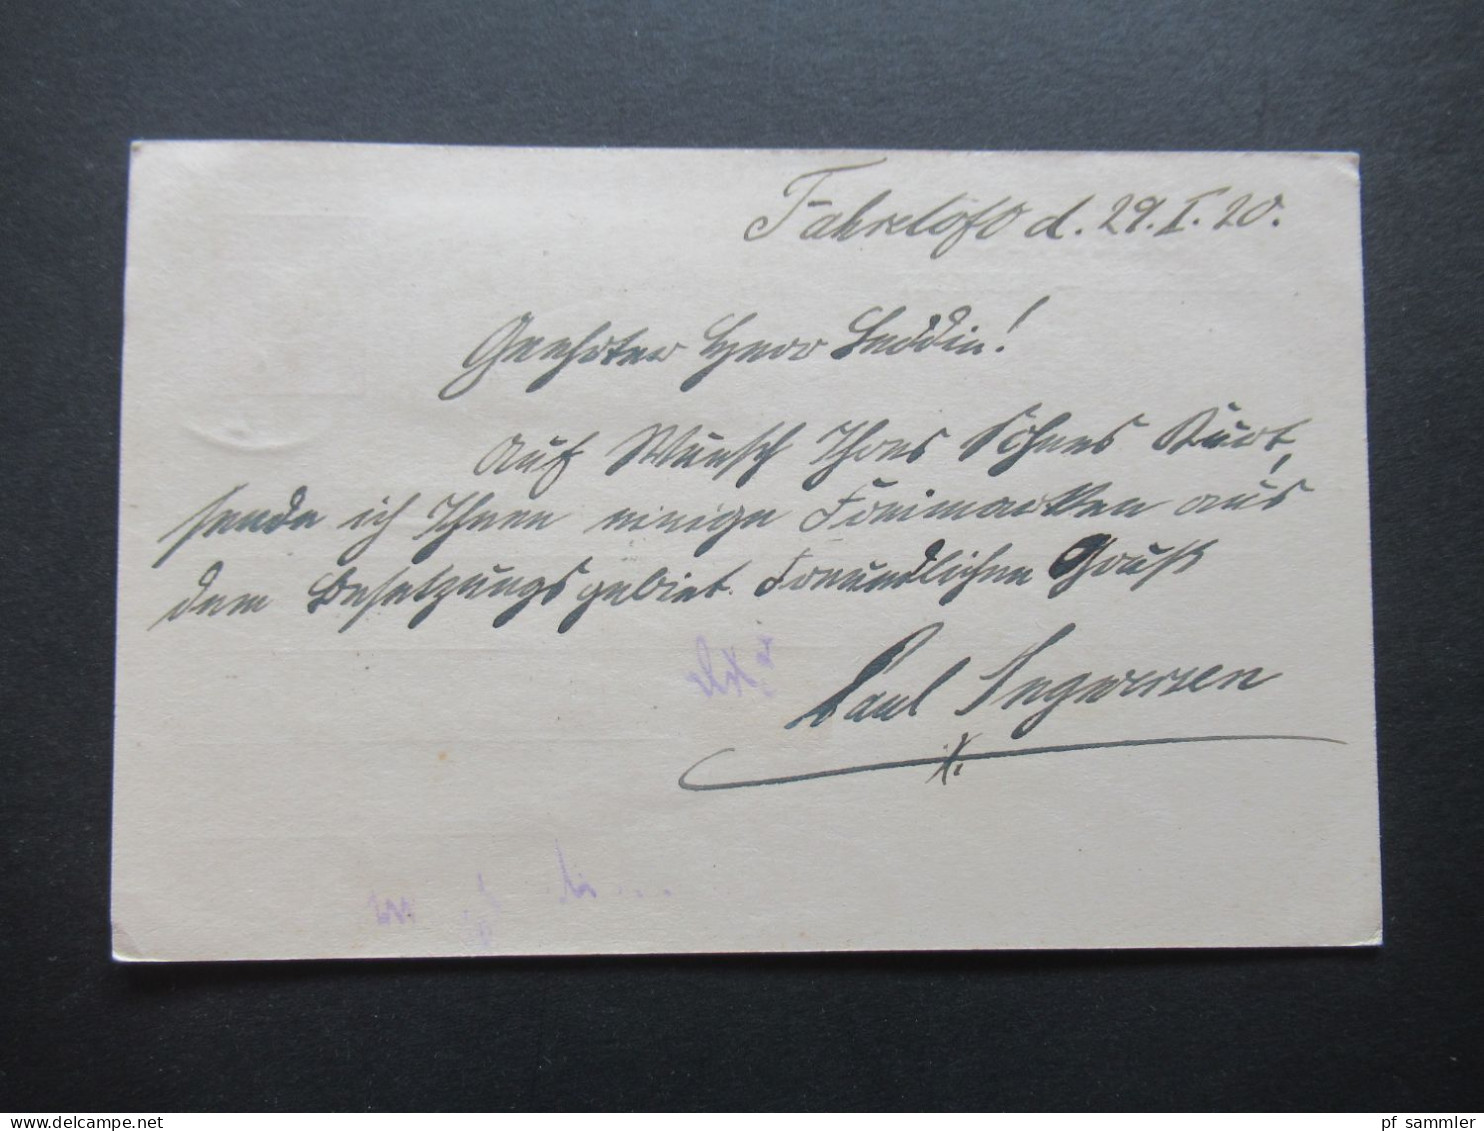 Fahretoft d. 29.I.20.
Geehrter Herr Leddin!
Auf Wunsch Ihres Sohnes Kurt,
sende ich Ihnen einige Freimarken aus
dem Besetzungsgebiet. Freundlichen Gruß
Paul Ingwersen
www.delcampe.net
pf_sammler